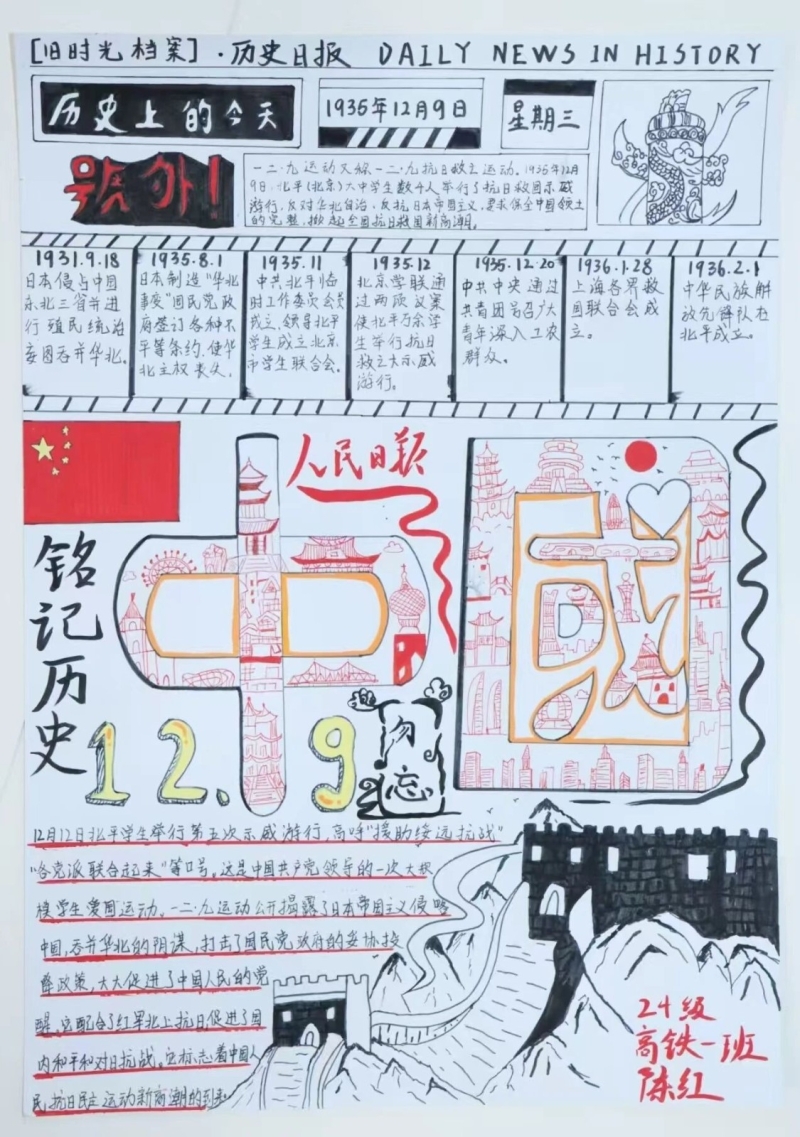 [旧时光档案]·历史日报 DAILY NEWS IN HISTORY
历史上的今天
1935年12月9日
星期三
号外!
一二·九运动又称一二·九抗日救亡运动。1935年12月
9日,北平(北京)大中学生数千人举行了抗日救国示威
游行,反对华北自治,反抗日本帝国主义,要求保全中国领土
的完整,掀起全国抗日救国新高潮。
1931.9.18
日本侵占中国
东北三省并进
行殖民统治
妄图吞并华北。
1935.8.1
日本制造"华北
事变"国民党政
府签订各种不
平等条约,使华
北主权丧失,
1935.11
中共北平临
时工作委员会
成立,领导北平
学生成立北京
市学生联合会。
1935.12
北京学联通
过两项议案
使北平万余学
生举行抗日
救亡大示威
游行。
1935.12.20
中共中央通过
共青团号召广大
青年深入工农
群众。
1936.1.28
上海各界救
国联合会成
立。
1936.2.1
中华民族解
放先锋队在
北平成立。
人民日报
铭记历史
中
國
12.9
勿忘
12月12日北平学生举行第五次示威游行,高呼"援助绥远抗战"
"各党派联合起来"等口号。这是中国共产党领导的一次大规
模学生爱国运动。一二·九运动公开揭露了日本帝国主义侵略
中国,吞并华北的阴谋,打击了国民党政府的妥协投
降政策,大大促进了中国人民的觉
醒。它配合了红军北上抗日,促进了国
内和平和对日抗战。它标志着中国人
民抗日民主运动新高潮的到来
24级
高铁一班
陈红